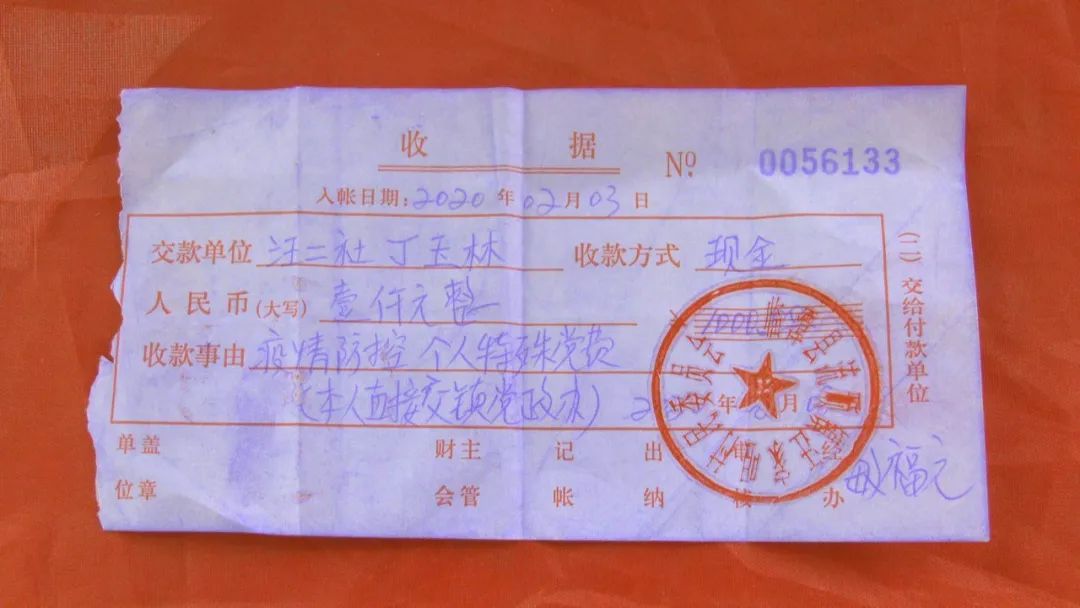 收据 Nº 0056133
入帐日期:2020年02月03日
交款单位 汪二社 丁玉林 收款方式 现金
人民币(大写) 壹仟元整
收款事由 疫情防控 个人特殊党费
(本人直接交镇党政办) 年 月
(二)交给付款单位
单位盖章 财会主管 记帐 出纳 审核 经办
福元